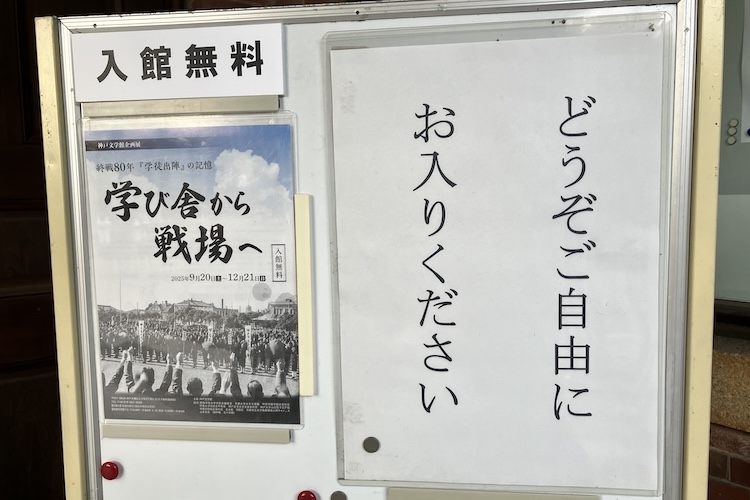 入館無料
神戸文学館企画展
終戦80年『学徒出陣』の記憶
学び舎から
戦場へ
入館無料
2025年9月20日土～12月21日日
どうぞご自由に
お入りください